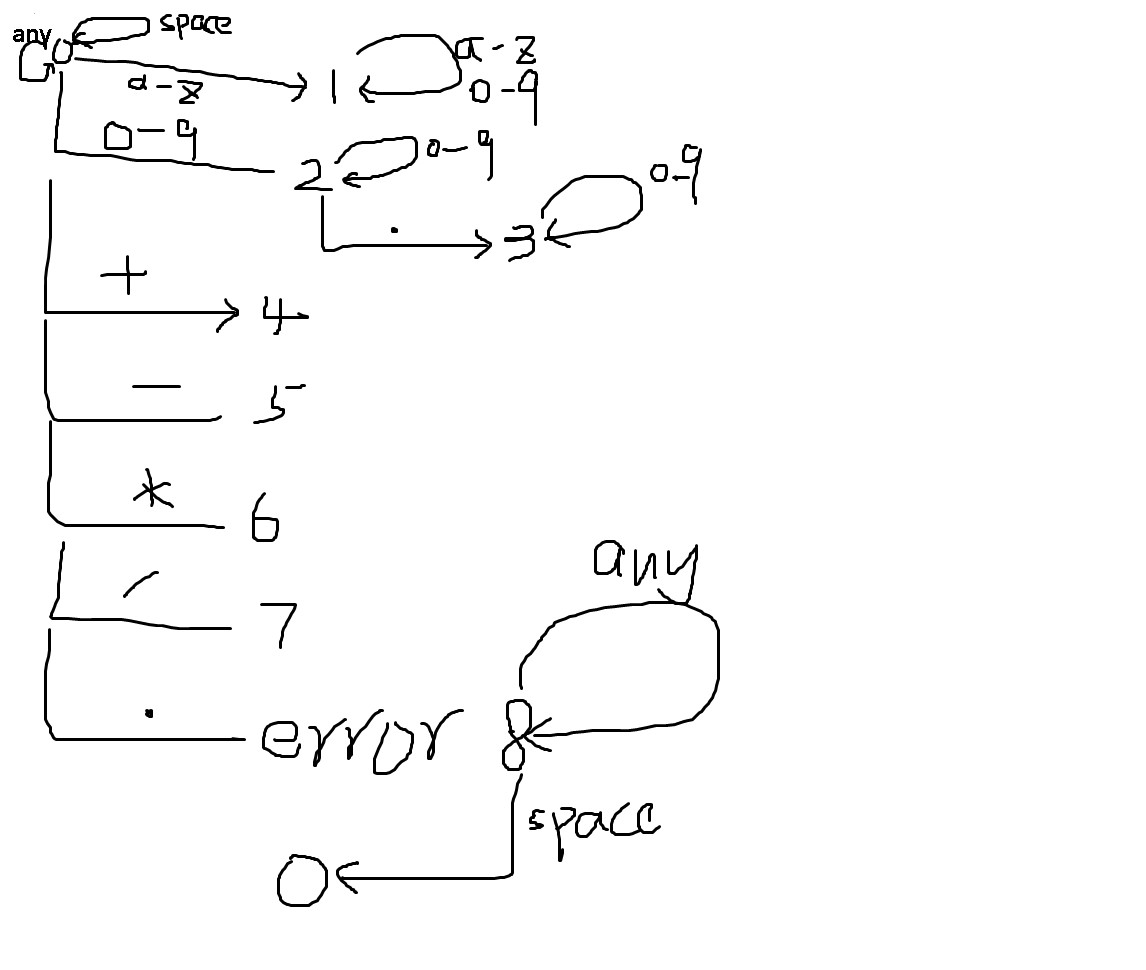 any
space
0
a-z
1
a-z
0-9
0-9
2
0-9
.
3
0-9
+
4
-
5
*
6
/
7
.
error
8
any
space
0